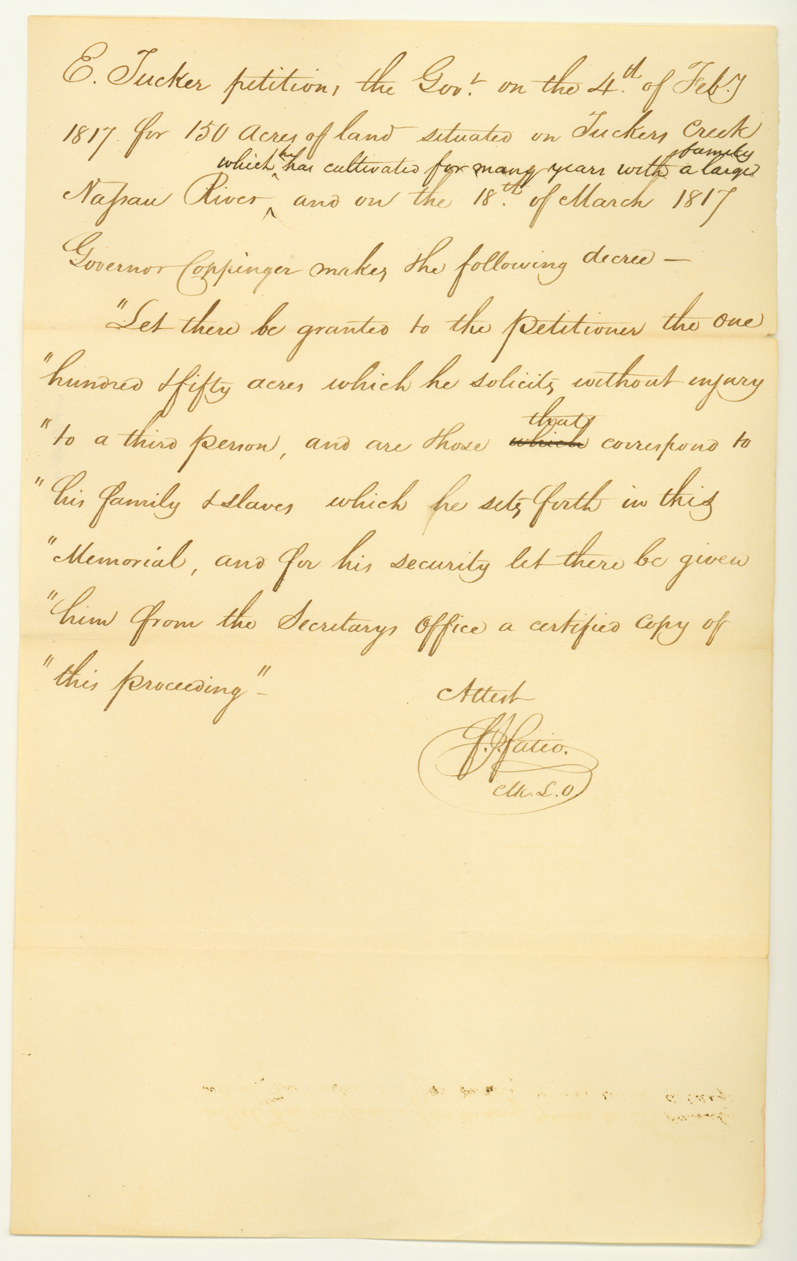 E. Tucker petitions the Govr. on the 4d. of Feby
1817 for 150 acres of land situated on Tuckers Creek
family
which he has cultivated for many years with a large
Nassau River, and on the 18th. of March 1817
Governor Coppinger makes the following decree —
"Let there be granted to the petitioner the one
"hundred & fifty acres which he solicits without injury
"to a third person, and are those which correspond to
that
"his family & slaves which he sets forth in this
"Memorial, and for his security let there be given
"him from the Secretarys Office a certified copy of
"this proceeding" —
Attest
F. J. Fatio.
Clk. L. O